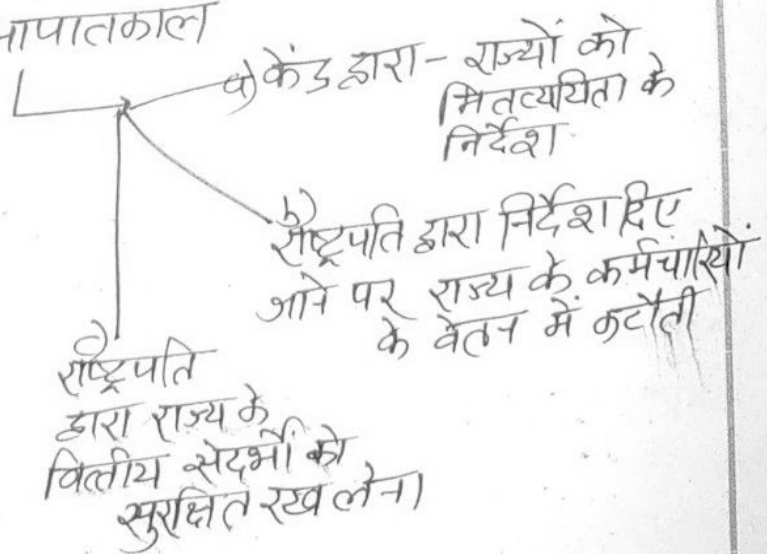 आपातकाल
a) केंद्र द्वारा - राज्यों को
मितव्ययिता के
निर्देश
b)
राष्ट्रपति द्वारा निर्देश दिए
जाने पर राज्य के कर्मचारियों
के वेतन में कटौती
c)
राष्ट्रपति
द्वारा राज्य के
वित्तीय संदर्भों को
सुरक्षित रख लेना